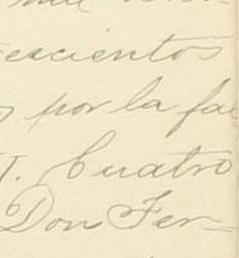 escientos
s por la fa
T. Cuatro
Don Fer-